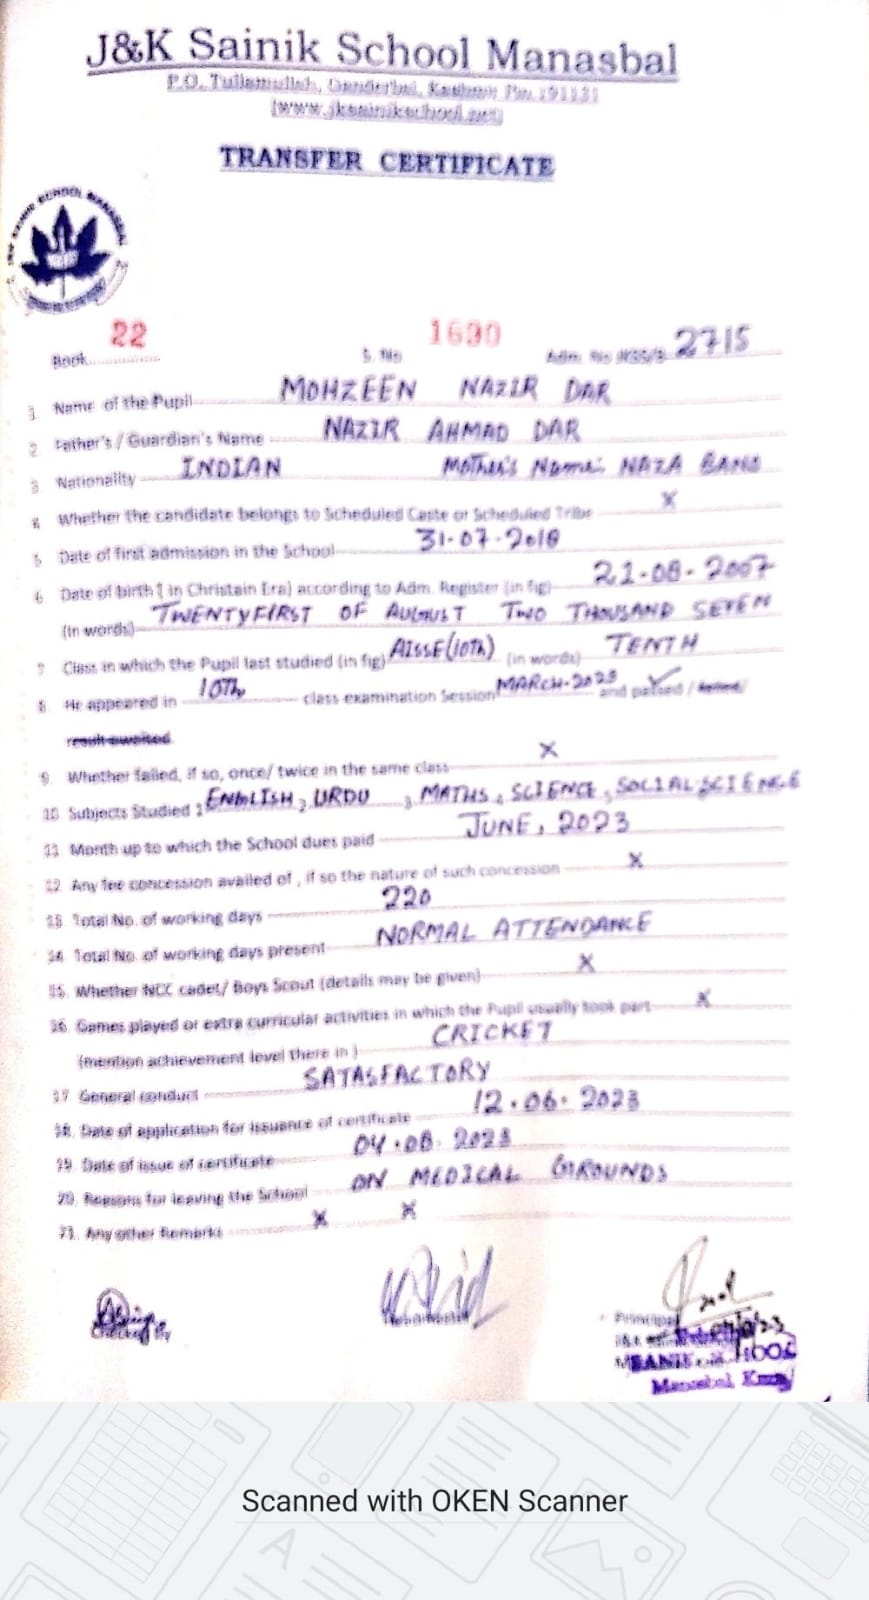 J&K Sainik School Manasbal
P.O. Tullamullah, Ganderbal, Kashmir Pin 191131
(www.jksainikschool.net)
TRANSFER CERTIFICATE
Book 22 S. No 1690 Adm. No JKSS/B 2715
1 Name of the Pupil MOHZEEN NAZIR DAR
2 Father's / Guardian's Name NAZIR AHMAD DAR
3 Nationality INDIAN Mother's Name: NAZA BANO
4 Whether the candidate belongs to Scheduled Caste or Scheduled Tribe x
5 Date of first admission in the School 31-07-2018
6 Date of birth ( in Christain Era) according to Adm. Register (in fig) 21-08-2007
(In words) TWENTYFIRST OF AUGUST TWO THOUSAND SEVEN
7 Class in which the Pupil last studied (in fig) AISSE(10Th) (in words) TENTH
8 He appeared in 10Th class examination Session MARCH-2023 and passed / failed/
result awaited
9. Whether failed, if so, once/ twice in the same class x
10 Subjects Studied : ENGLISH, URDU, MATHS, SCIENCE, SOCIAL SCIENCE
11 Month up to which the School dues paid JUNE, 2023
12 Any fee concession availed of , if so the nature of such concession x
13 Total No. of working days 220
14 Total No. of working days present NORMAL ATTENDANCE
15. Whether NCC cadet/ Boys Scout (details may be given) x
16 Games played or extra curricular activities in which the Pupil usually took part x
(mention achievement level there in ) CRICKET
17 General conduct SATASFACTORY
18. Date of application for issuance of certificate 12.06.2023
19 Date of issue of certificate 04.08.2023
20. Reasons for leaving the School ON MEDICAL GROUNDS
21. Any other Remarks x x
Principal
Manasbal
Scanned with OKEN Scanner